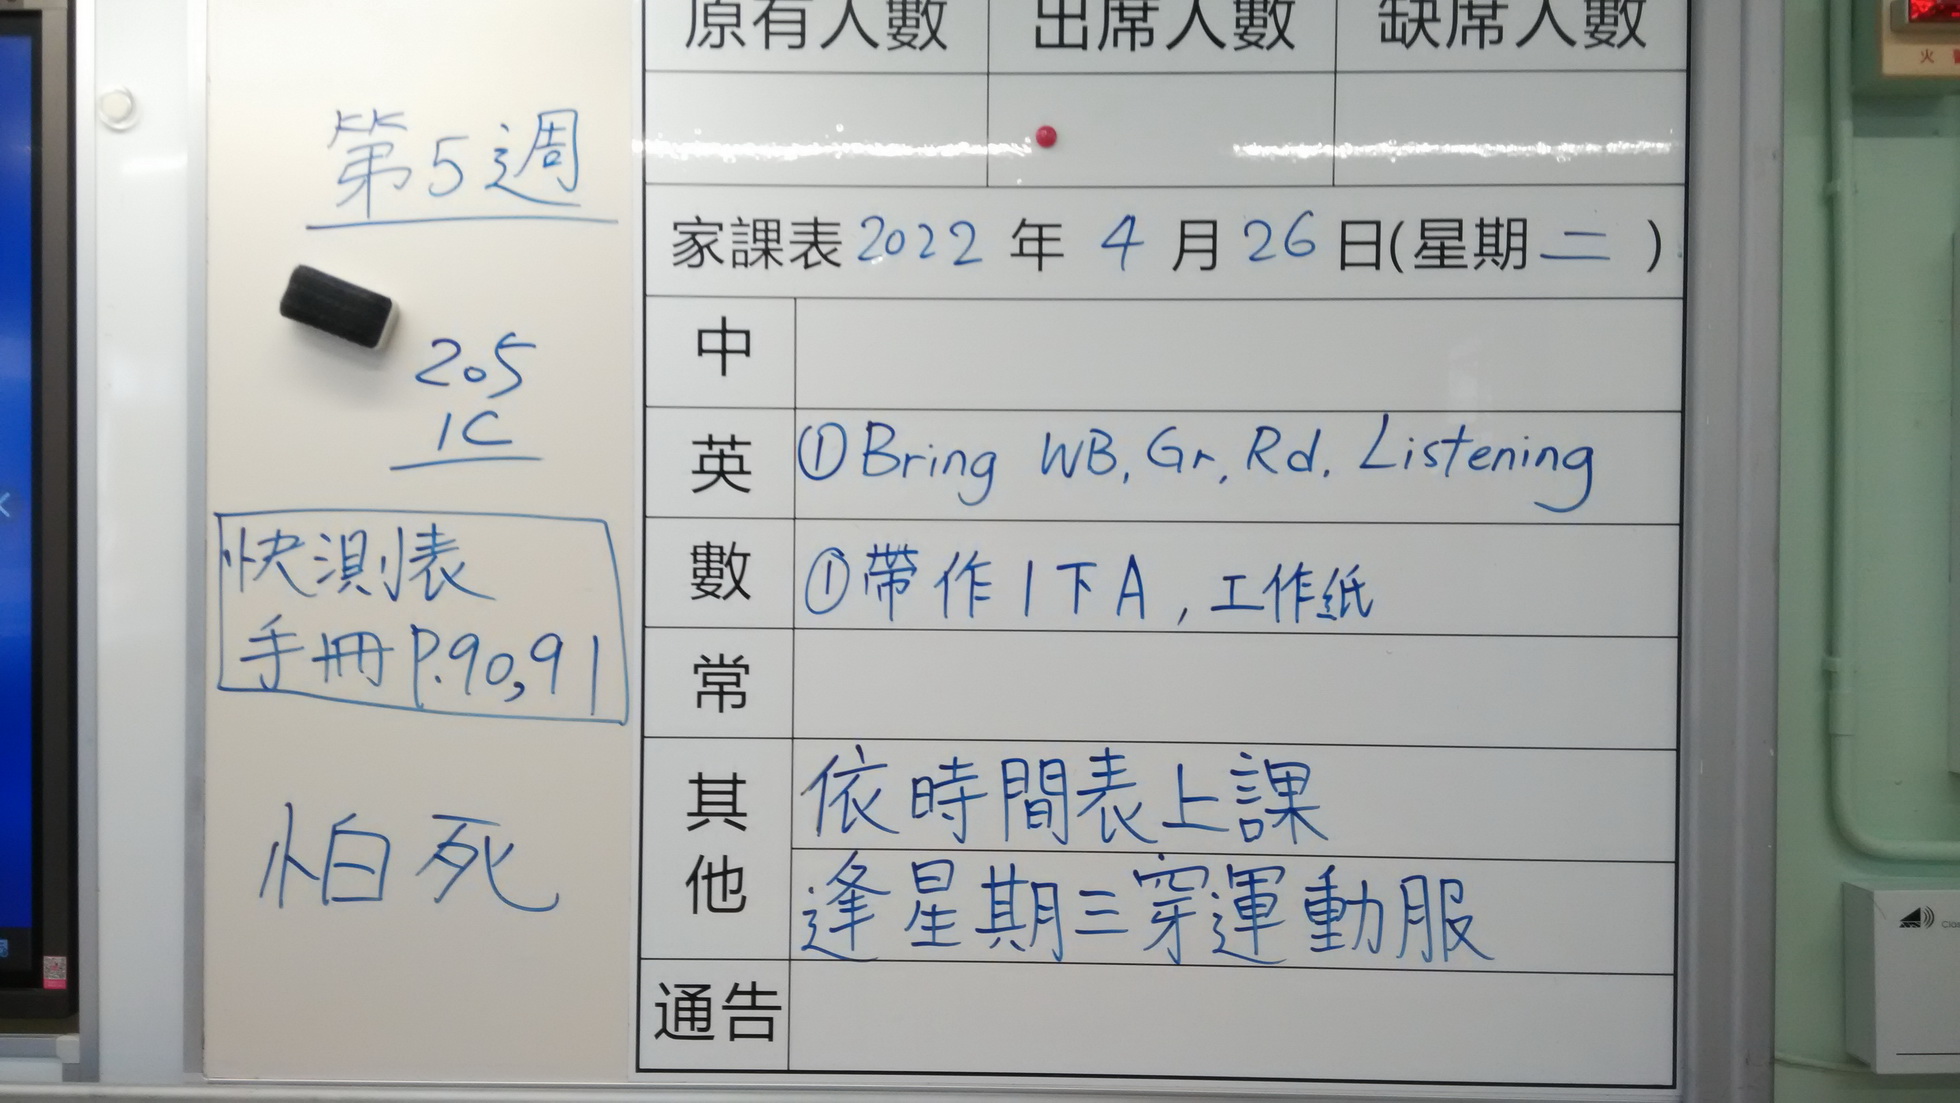 原有人數 出席人數 缺席人數
第5週
家課表2022年4月26日(星期二)
205
1C
中
英 ①Bring WB, Gr, Rd, Listening
數 ①帶作1下A, 工作紙
快測表
手冊P.90,91
常
其他 依時間表上課
逢星期三穿運動服
怕死
通告
火